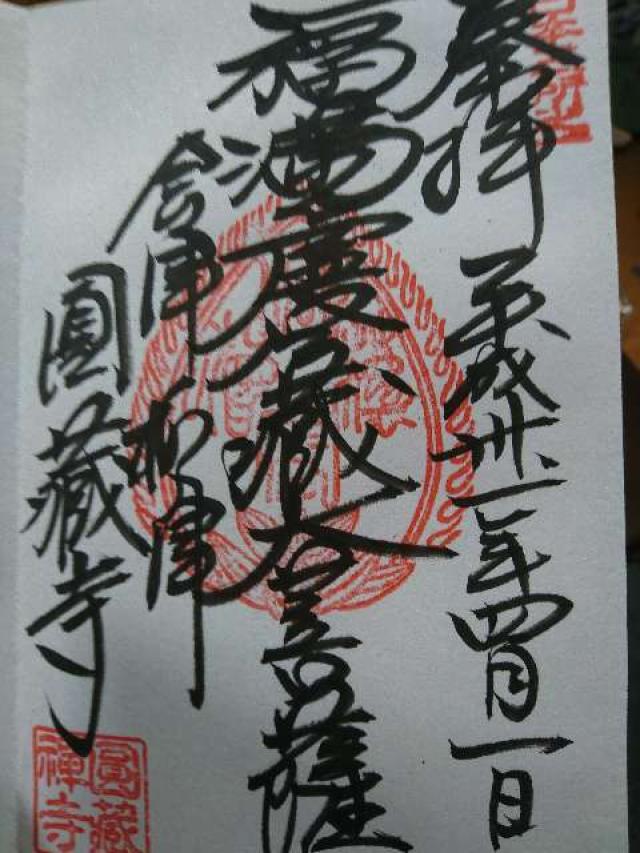 奉拝 平成卅一年四月一日
福満虚空藏大菩薩
会津柳津
圓藏寺
圓藏
禪寺